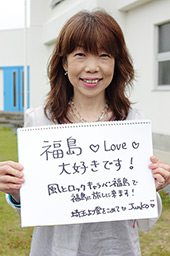 福島 ♡ Love ♡
大好きです！
風とロック キャラバン福島で
福島に旅しに来ます！
埼玉より愛をこめて♡ Junko